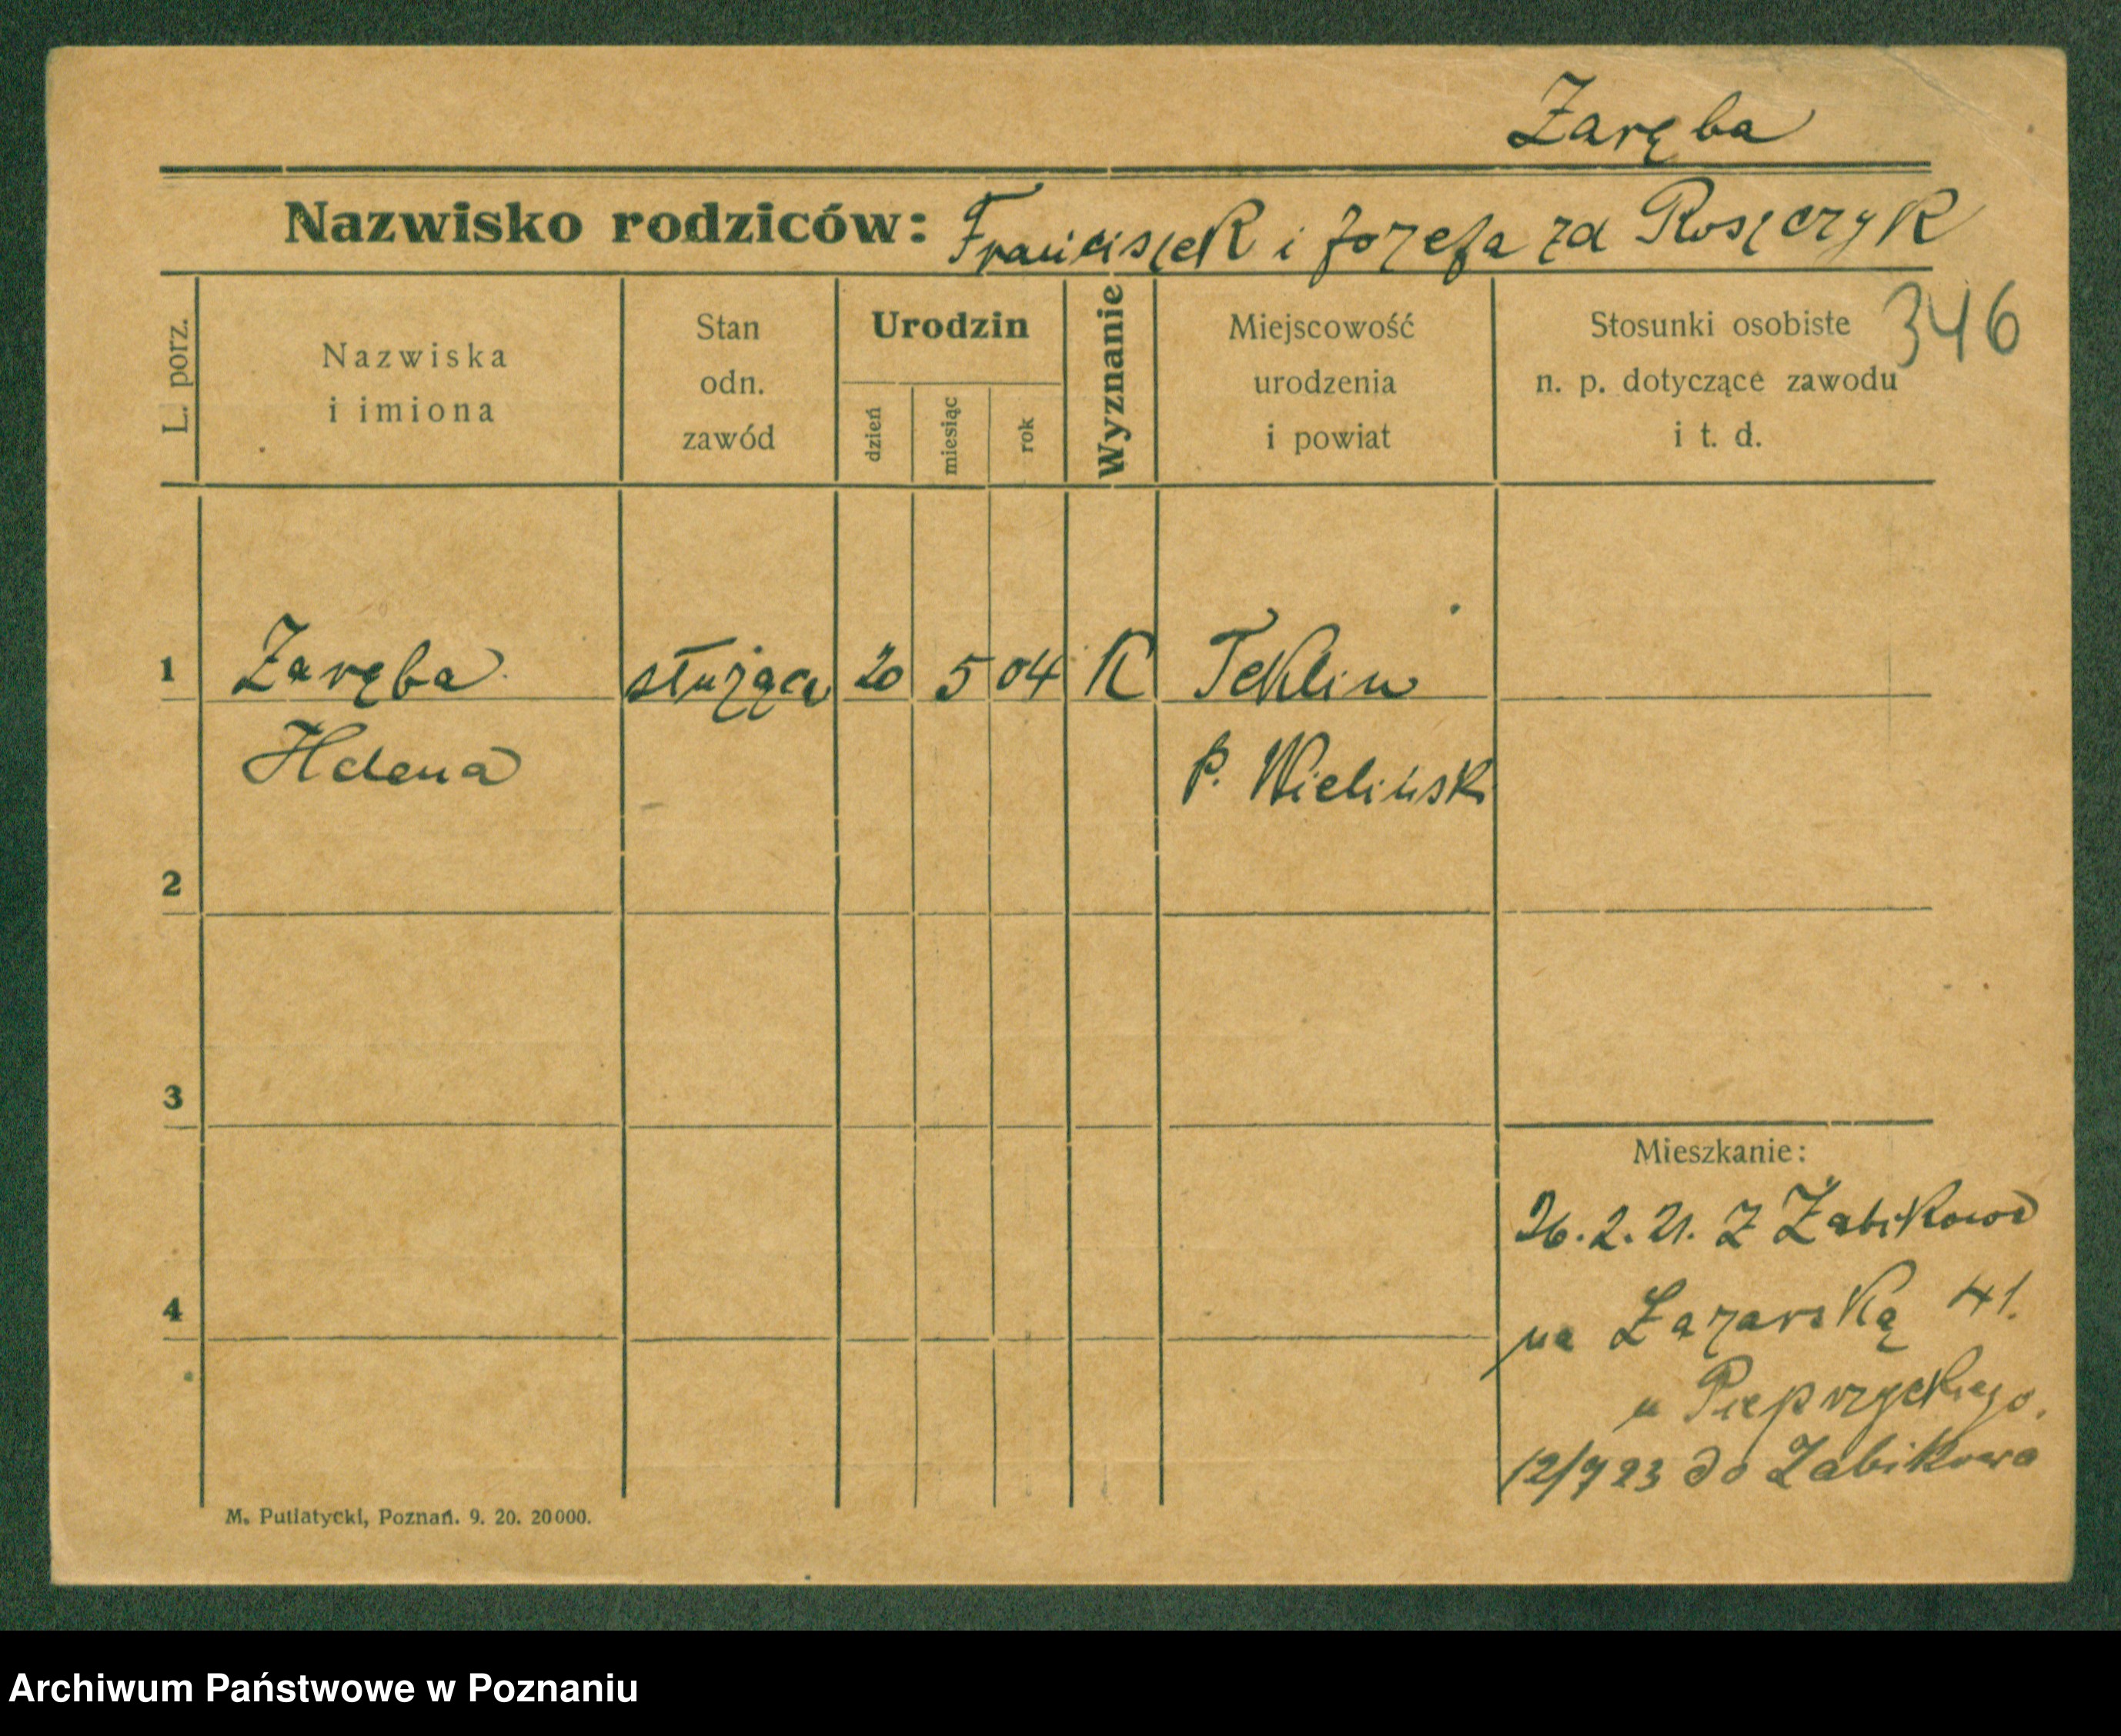 Zaręba
Nazwisko rodziców: Franciszek i Jozefa zd Roszczyk
346
L. porz.
Nazwiska
i imiona
Stan
odn.
zawód
Urodzin
dzień
miesiąc
rok
Wyznanie
Miejscowość
urodzenia
i powiat
Stosunki osobiste
n. p. dotyczące zawodu
i t. d.
1 Zaręba służąca 20 5 04 K Teklin
Helena p. Wieliński
2
3
Mieszkanie:
26.2.21. z Żabikowa
4
na Łazarską 41.
u Pieprzyckiego.
12/9 23 do Żabikowa
M. Putiatycki, Poznań. 9. 20. 20000.
Archiwum Państwowe w Poznaniu